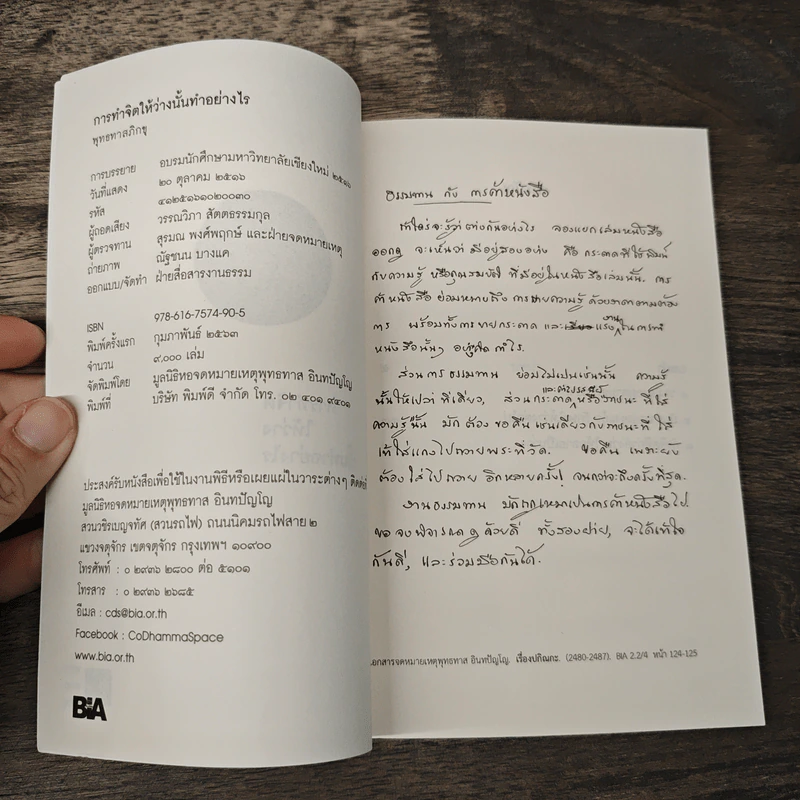 การทำจิตให้ว่างนั้นทำอย่างไร
พุทธทาสภิกขุ
การบรรยาย อบรมนักศึกษามหาวิทยาลัยเชียงใหม่ ๒๕๑๖
วันที่แสดง ๒๐ ตุลาคม ๒๕๑๖
รหัส ๔๑๒๕๑๖๑๐๒๐๐๓๐
ผู้ถอดเสียง วรรณวิภา สัตตธรรมกุล
ผู้ตรวจทาน สุรมณ พงศ์พฤกษ์ และฝ่ายจดหมายเหตุ
ถ่ายภาพ ณัฐชนน บางแค
ออกแบบ/จัดทำ ฝ่ายสื่อสารงานธรรม
ISBN 978-616-7574-90-5
พิมพ์ครั้งแรก กุมภาพันธ์ ๒๕๖๓
จำนวน ๙,๐๐๐ เล่ม
จัดพิมพ์โดย มูลนิธิหอจดหมายเหตุพุทธทาส อินทปัญโญ
พิมพ์ที่ บริษัท พิมพ์ดี จำกัด โทร. ๐๒ ๔๐๑ ๙๔๐๑
ประสงค์รับหนังสือเพื่อใช้ในงานพิธีหรือเผยแผ่ในวาระต่างๆ ติดต่อ
มูลนิธิหอจดหมายเหตุพุทธทาส อินทปัญโญ
สวนวชิรเบญจทัศ (สวนรถไฟ) ถนนนิคมรถไฟสาย ๒
แขวงจตุจักร เขตจตุจักร กรุงเทพฯ ๑๐๙๐๐
โทรศัพท์ : ๐ ๒๙๓๖ ๒๘๐๐ ต่อ ๕๑๐๑
โทรสาร : ๐ ๒๙๓๖ ๒๖๘๕
อีเมล : cds@bia.or.th
Facebook : CoDhammaSpace
www.bia.or.th
BIA
ธรรมทาน กับ การค้าหนังสือ
ถ้าใคร่จะรู้ว่าต่างกันอย่างไร ลองแยกเล่มหนังสือ
ออกดู จะเห็นว่า มีอยู่สองอย่าง คือ กระดาษที่ใช้พิมพ์
กับความรู้ หรือคุณสมบัติ ที่มีอยู่ในหนังสือเล่มนั้น. การ
ค้าหนังสือ ย่อมหมายถึง การขายความรู้ ด้วยราคาตามต้อง
การ พร้อมทั้งการขายกระดาษ และแรงงานในการทำ
หนังสือนั้นๆ อย่างกำไร.
ส่วนการธรรมทาน ย่อมไม่เป็นเช่นนั้น ความรู้
นั้นให้เปล่า ทีเดียว, ส่วนกระดาษและค่าแรงหรือภาชนะ ที่ใส่
ความรู้นั้น มักต้องขอคืน เช่นเดียวกับภาชนะที่ใส่
เท้ใส่แกงไปถวายพระที่วัด. ขอคืน เพราะยัง
ต้องใส่ไปถวาย อีกหลายครั้ง, จนกว่าจะถึงครั้งที่สุด.
งานธรรมทาน มักถูกเหมาเป็นการค้าหนังสือไป.
ขอจงพิจารณาดูด้วยดี ทั้งสองฝ่าย, จะได้เข้าใจ
กันดี, และร่วมมือกันได้.
เอกสารจดหมายเหตุพุทธทาส อินทปัญโญ. เรื่องปกิณกะ. (2480-2487). BIA 2.2/4 หน้า 124-125